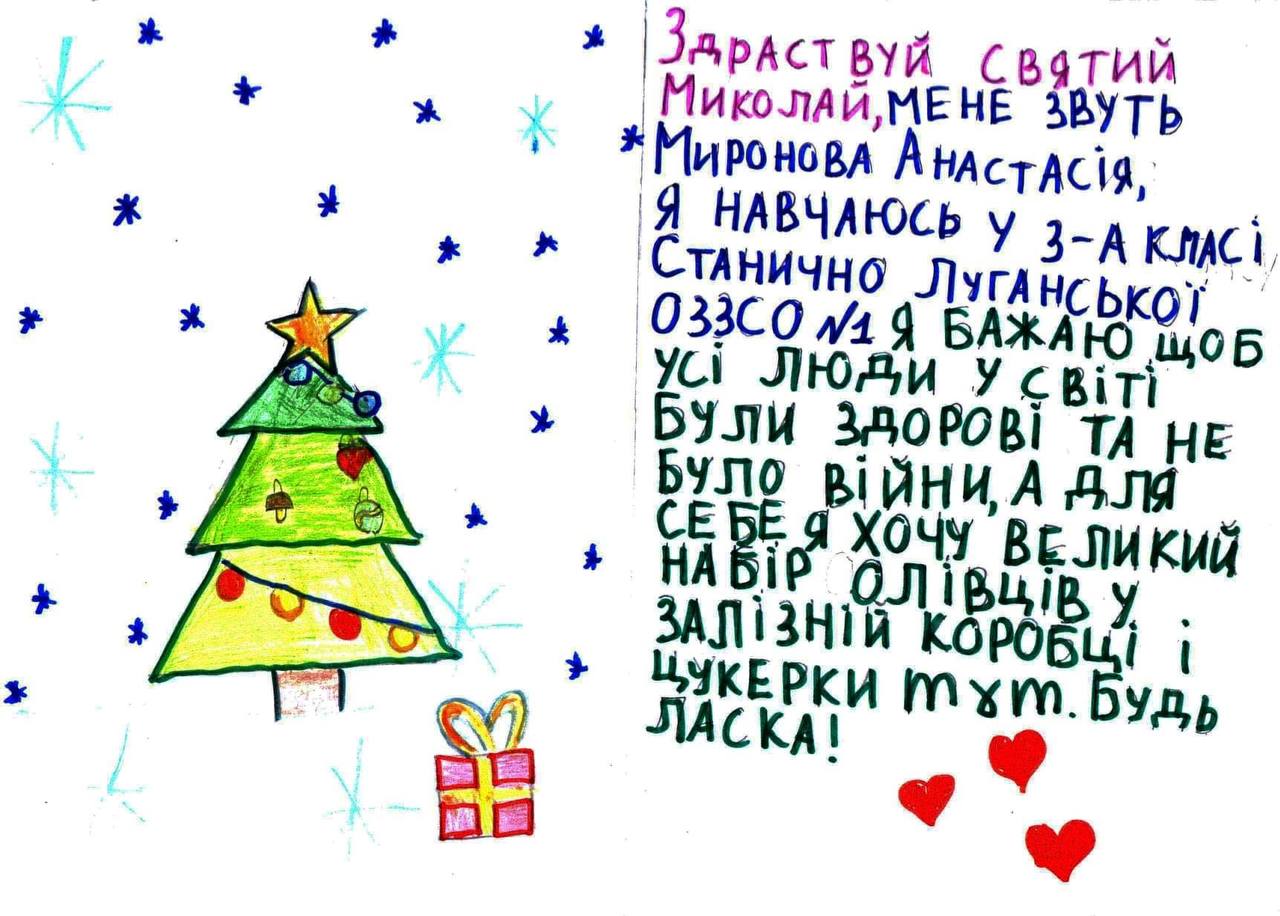 Здраствуй святий
Миколай, мене звуть
Миронова Анастасія,
я навчаюсь у 3-А класі
Станично Луганської
ОЗЗСО №1 Я бажаю щоб
усі люди у світі
були здорові та не
було війни, а для
себе я хочу великий
набір олівців у
залізній коробці і
цукерки m&m. Будь
ласка!